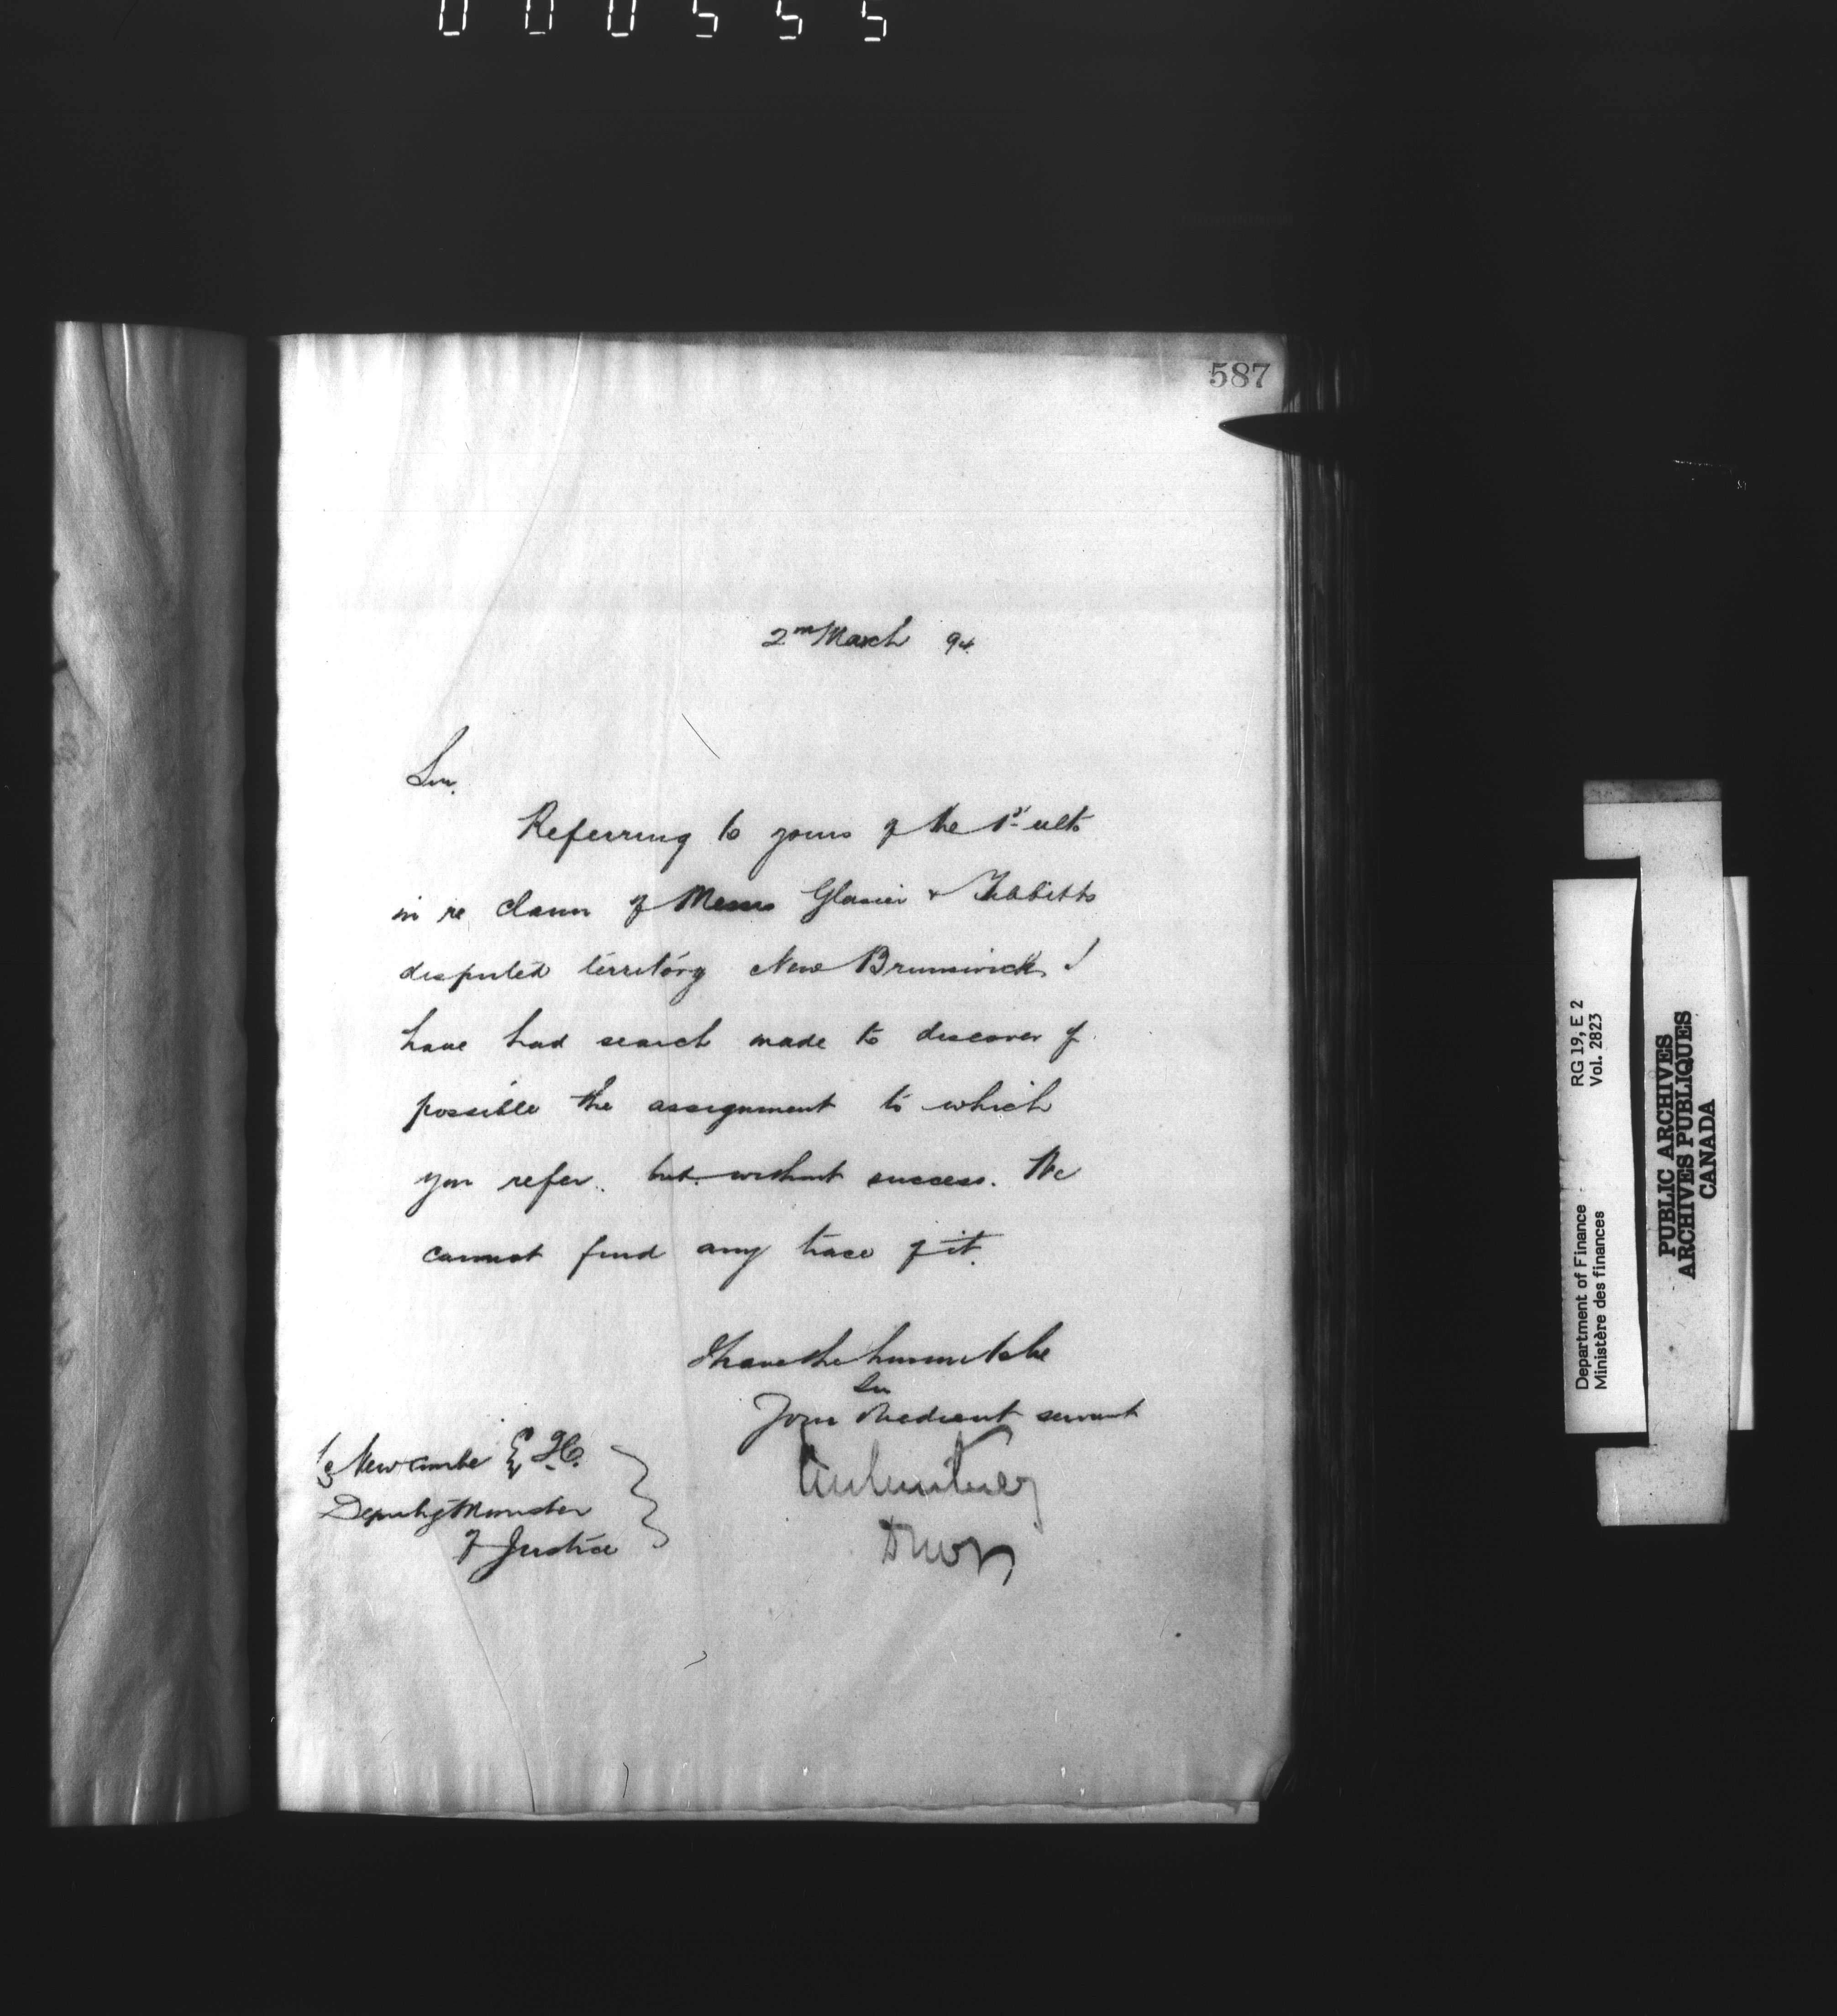 000555
587
2nd March 94.
Sir,
Referring to yours of the 1st ulto
in re claim of Messrs Glasier & Tibbitts
disputed territory New Brunswick, I
have had search made to discover if
possible the assignment to which
you refer, but without success. We
cannot find any trace of it.
I have the honour to be
Sir
Your obedient servant
Newcombe Esq Q.C.
Deputy Minister
of Justice
Department of Finance RG 19, E 2
Ministère des finances Vol. 2823
PUBLIC ARCHIVES
ARCHIVES PUBLIQUES
CANADA